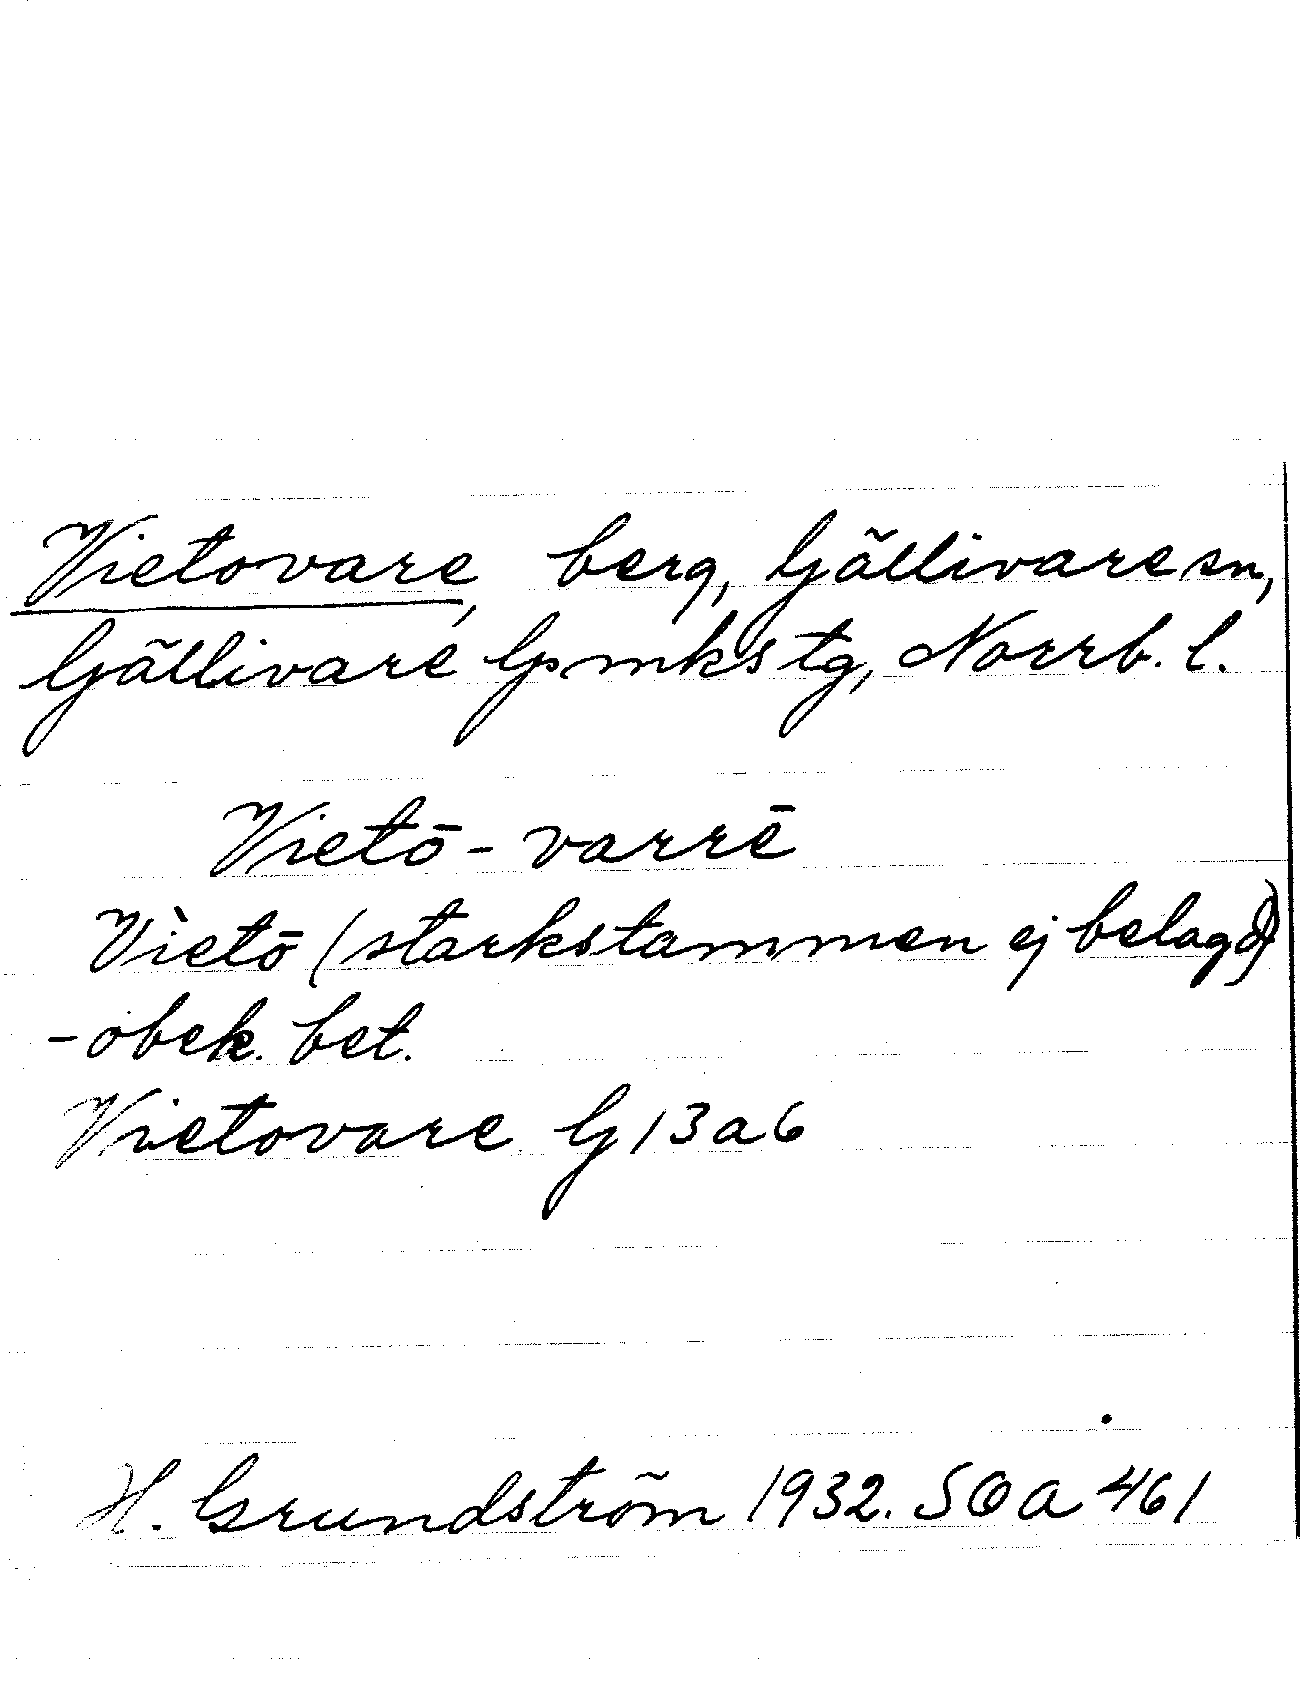 Vietovare, berg, Gällivare sn,
Gällivare lpmks tg, Norrb. l.
Vietō-varrē
Vìetō (starkstammen ej belagd)
- obek. bet.
Vietovare G 13 a 6
H. Grundström 1932. SOA 461